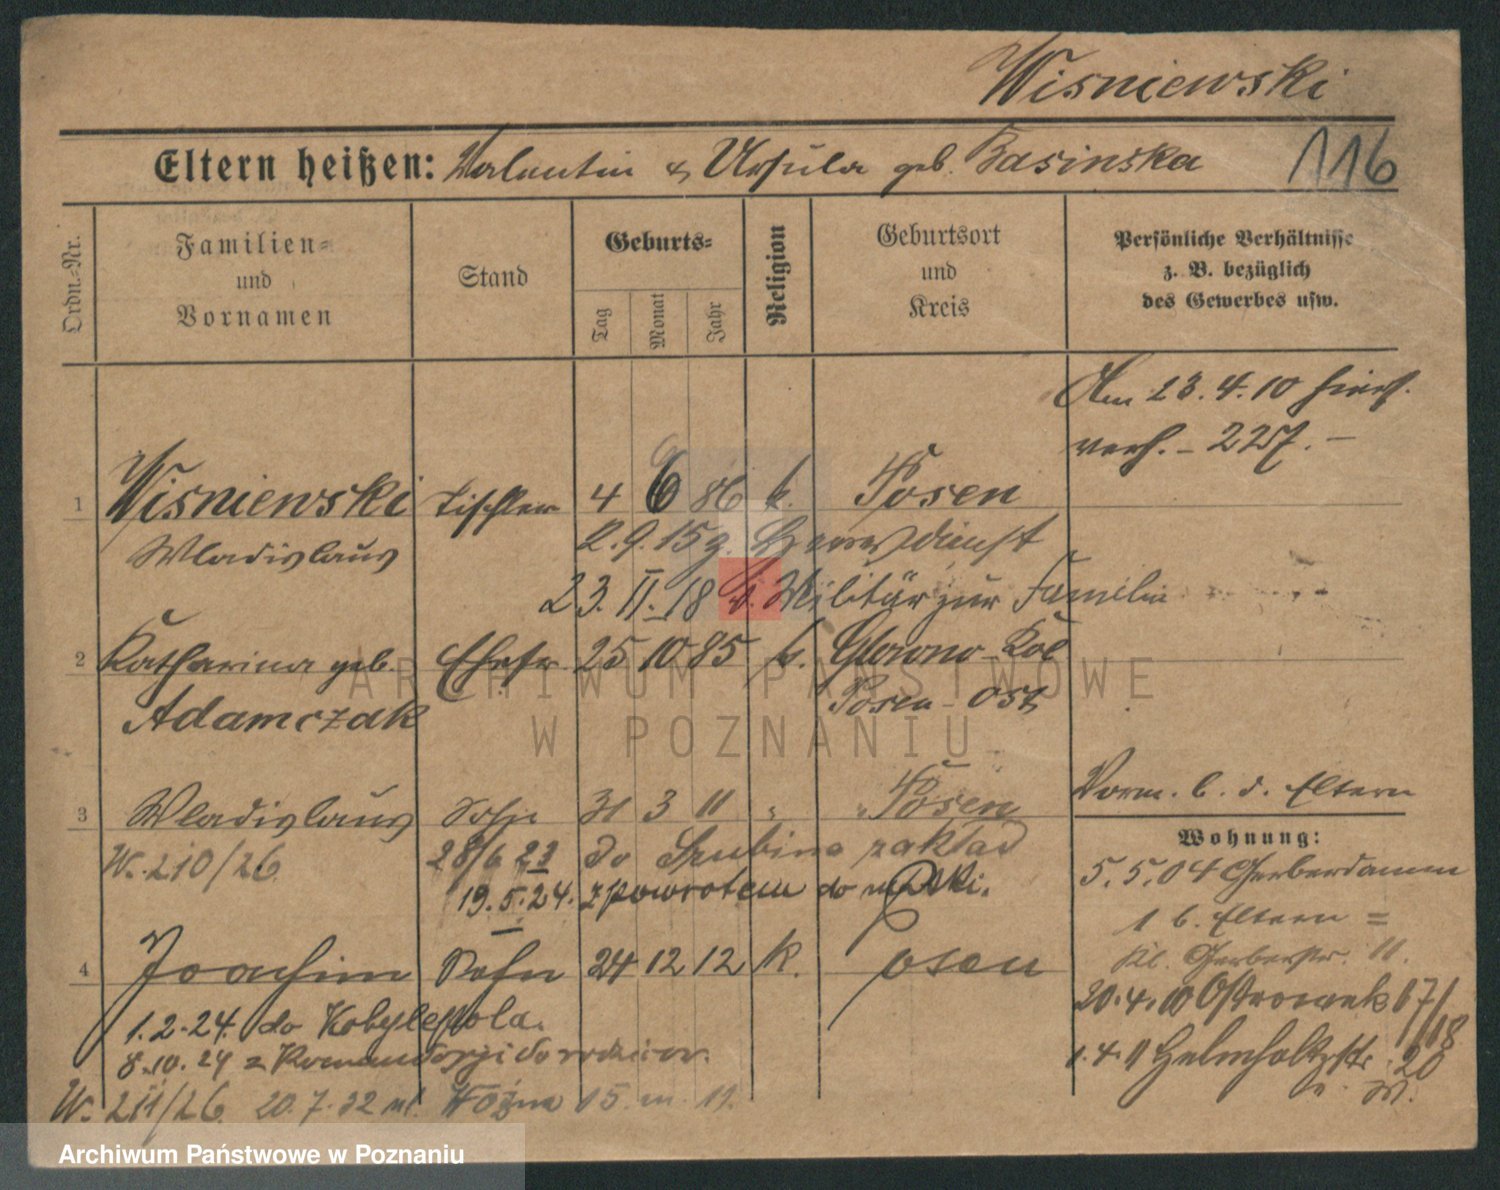 Wisniewski
Eltern heißen: Valentin & Ursula geb. Basinska
116
Ordn.-Nr.
Familien-
und
Vornamen
Stand
Geburts-
Tag
Monat
Jahr
Religion
Geburtsort
und
Kreis
Persönliche Verhältnisse
z. B. bezüglich
des Gewerbes usw.
Am 23.4.10 hier
verh. - 2257. -
1 Wisniewski Tischler 4 6 86 k. Posen
Wladislaus 2.9.15 z. Heeresdienst
23. II. 18 v. Militär zur Familie
2 Katharina geb. Ehefr. 25 10 85 k. Glowno Kol
Adamczak Posen-Ost
3 Wladislaus Sohn 31 3 11 " Posen
W. 210/26 28/6 23 do Szubina zakład
19.5.24. z powrotem do
4 Joachim Sohn 24 12 12 k. Posen
1.2.24. do Kobylepola.
8.10.24 z Komandorji do rodziców.
W. 211/26. 20.7.32 ul. Woźna 15 m. 11.
Vorm. b. d. Eltern
Wohnung:
5.5.04 Gerberdamm
1 b. Eltern =
Kl. Gerberstr. 11.
20.4.10 Ostrowek 17/
18
1.4.11 Helmholtzstr. 20
ARCHIWUM PAŃSTWOWE
W POZNANIU
Archiwum Państwowe w Poznaniu